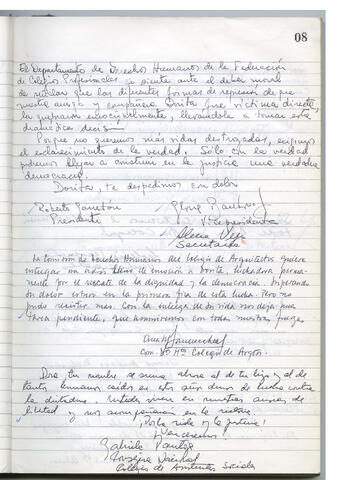 08
El Departamento de Derechos Humanos de la Federación
de Colegios Profesionales se siente ante el deber moral
de señalar que las diferentes formas de represión de que
nuestra amiga y compañera Dorita fue víctima directa,
la golpearon emocionalmente, llevándola a tomar esta
dramática decisión
Porque no queremos más vidas destrozadas, exigimos
el esclarecimiento de la verdad. Sólo con la verdad
podremos llegar a construir en la justicia una verdadera
democracia.
Dorita, te despedimos con dolor
Roberto
Presidente Vicepresidenta
Secretaria
La Comisión de Derechos Humanos del Colegio de Arquitectos quiere
entregar un adiós lleno de emoción a Dorita, luchadora perma-
nente por el rescate de la dignidad y la democracia. Superando
su dolor estuvo en la primera fila de esta lucha. Pero no
pudo resistir más. Con la entrega de su vida nos deja una
tarea pendiente, que asumiremos con toda nuestra fuerza
Com. DD Hº Colegio de Arqtos.
Dora tu nombre se suma ahora al de tu hijo y al de
tantos hermanos caídos en estos años duros de lucha contra
la dictadura. Ustedes viven en nuestras ansias de
libertad y nos acompañarán en la victoria.
¡Por la vida y la justicia!
¡Venceremos!
Gabriela
Consejera Nacional
Colegio de Asistentes Sociales